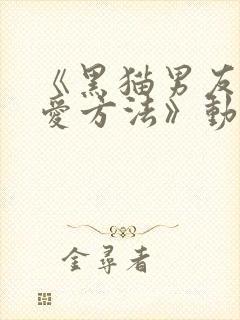 《黑猫男友
愛方法》動
金尋者